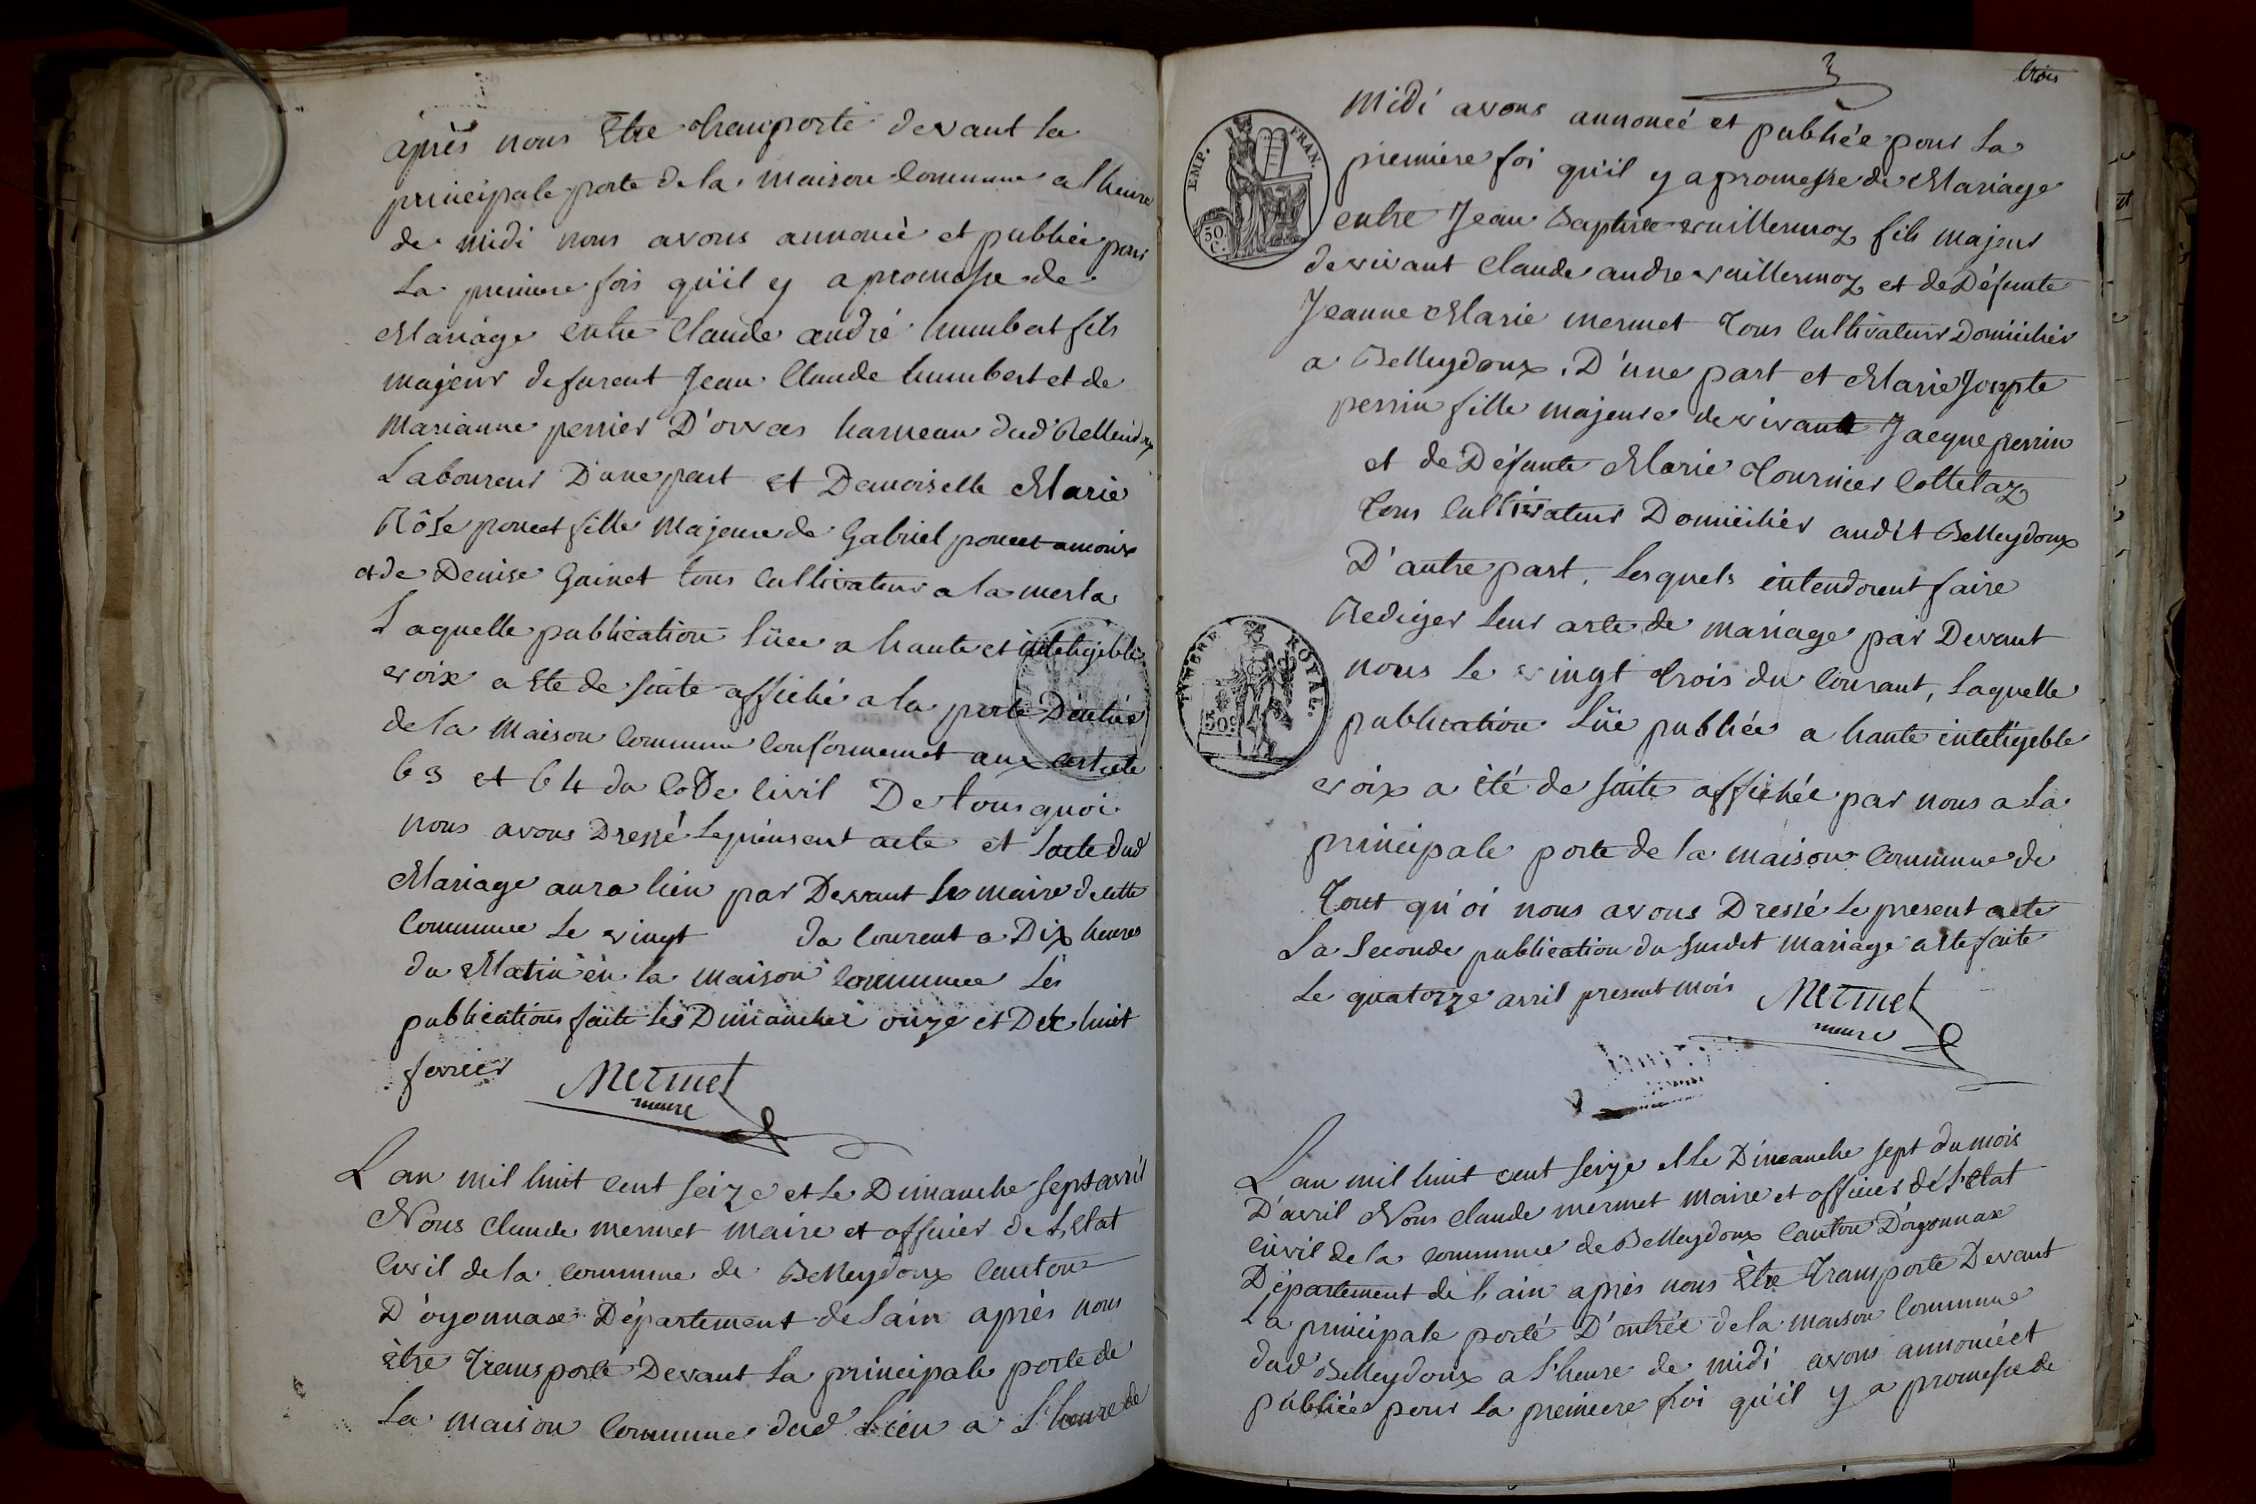 après nous Etre transporté devant la
principale porte de la maison commune a l'heure
de midi nous avons annoncé et publiée pour
La premiere fois qu'il y a promesse de
Mariage entre Claude andré humbert fils
majeur defureut Jean Claude humbert et de
Marianne perrier D'orvas hameau dud' Belleydoux
Laboureur D'une part et Demoiselle Marie
Rôse poncet fille Majeure de Gabriel poncet amoris
et de Denise Gainet tous Cultivateur a la
Laquelle publication Lüe a haute et inteligible
voix a Ete de suite affiché a la porte D'entrée
de la Maison Commune Conformemet aux article
63 et 64 du Code Civil De tous quoi
nous avons Dressé Le présent acte et Lacte dud'
Mariage aura lieu par Devant Le maire de cette
Commune Le vingt du Courent a Dix heures
du Matin en la maison Commune Les
publications faite Les Dimanches onze et Dix huit
fevrier Mermet
maire
L'an mil huit cent seize et Le Dimanche sept avril
Nous Claude mermet maire et officier de L'Etat
Civil de la Commune de Belleydoux Canton
D'oyonnax Département de Lain après nous
être Transporté Devant La principale porte de
La maison Commune dud' Lieu a L'heure de
3 trois
EMP. FRAN.
50 C.
midi avons annoncé et publiée pour La
premiere foi qu'il y a promesse de Mariage
entre Jean Baptiste vuillermoz fils majeur
de vivant Claude andre vuillermoz et de Défunte
Jeanne Marie mermet Tous Cultivateurs Domicilies
a Belleydoux, D'une part et Marie Josepte
perrin fille majeure de vivant Jacque perrin
et de Défunte Marie Tournier Cottelaz
Tous Cultivateurs Domiciliés audit Belleydoux
D'autre part, Lesquels intendorent faire
Rediger Leur acte de mariage par Devant
TIMBRE ROYAL.
50 c
nous Le vingt trois du Courant, Laquelle
publication Lüe publiée a haute inteligeble
voix a été de suite affichée par nous a La
principale porte de la maison Commune de
Tout qu'oi nous avons Dressé Le present acte
La Seconde publication du susdit mariage a ete faite
Le quatorze avril present mois Mermet
maire
L'an mil huit cent seize et Le Dimanche sept du mois
D'avril Nous Claude mermet maire et officier de L'Etat
Civil de la Commune de Belleydoux Canton D'oyonnax
Département de L'ain après nous Etre Transporté Devant
La principale porté D'entrée de la maison Commune
dud' Belleydoux a L'heure de midi avons annoncée et
publiées pour La premiere foi qu'il y a promesse de